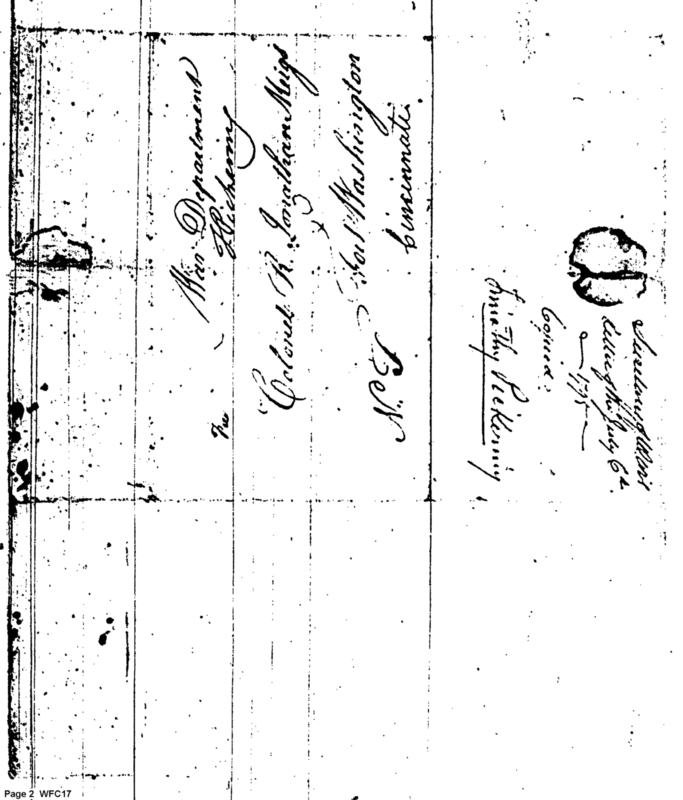 War Department
T Pickering
Free
Colonel R. Jonathan Meigs
Fort Washington
Cincinnati
N. T
Secretary of War's
Letter of the July 6th.
1795
Copied.
Timothy Pickering
Page 2 WFC17